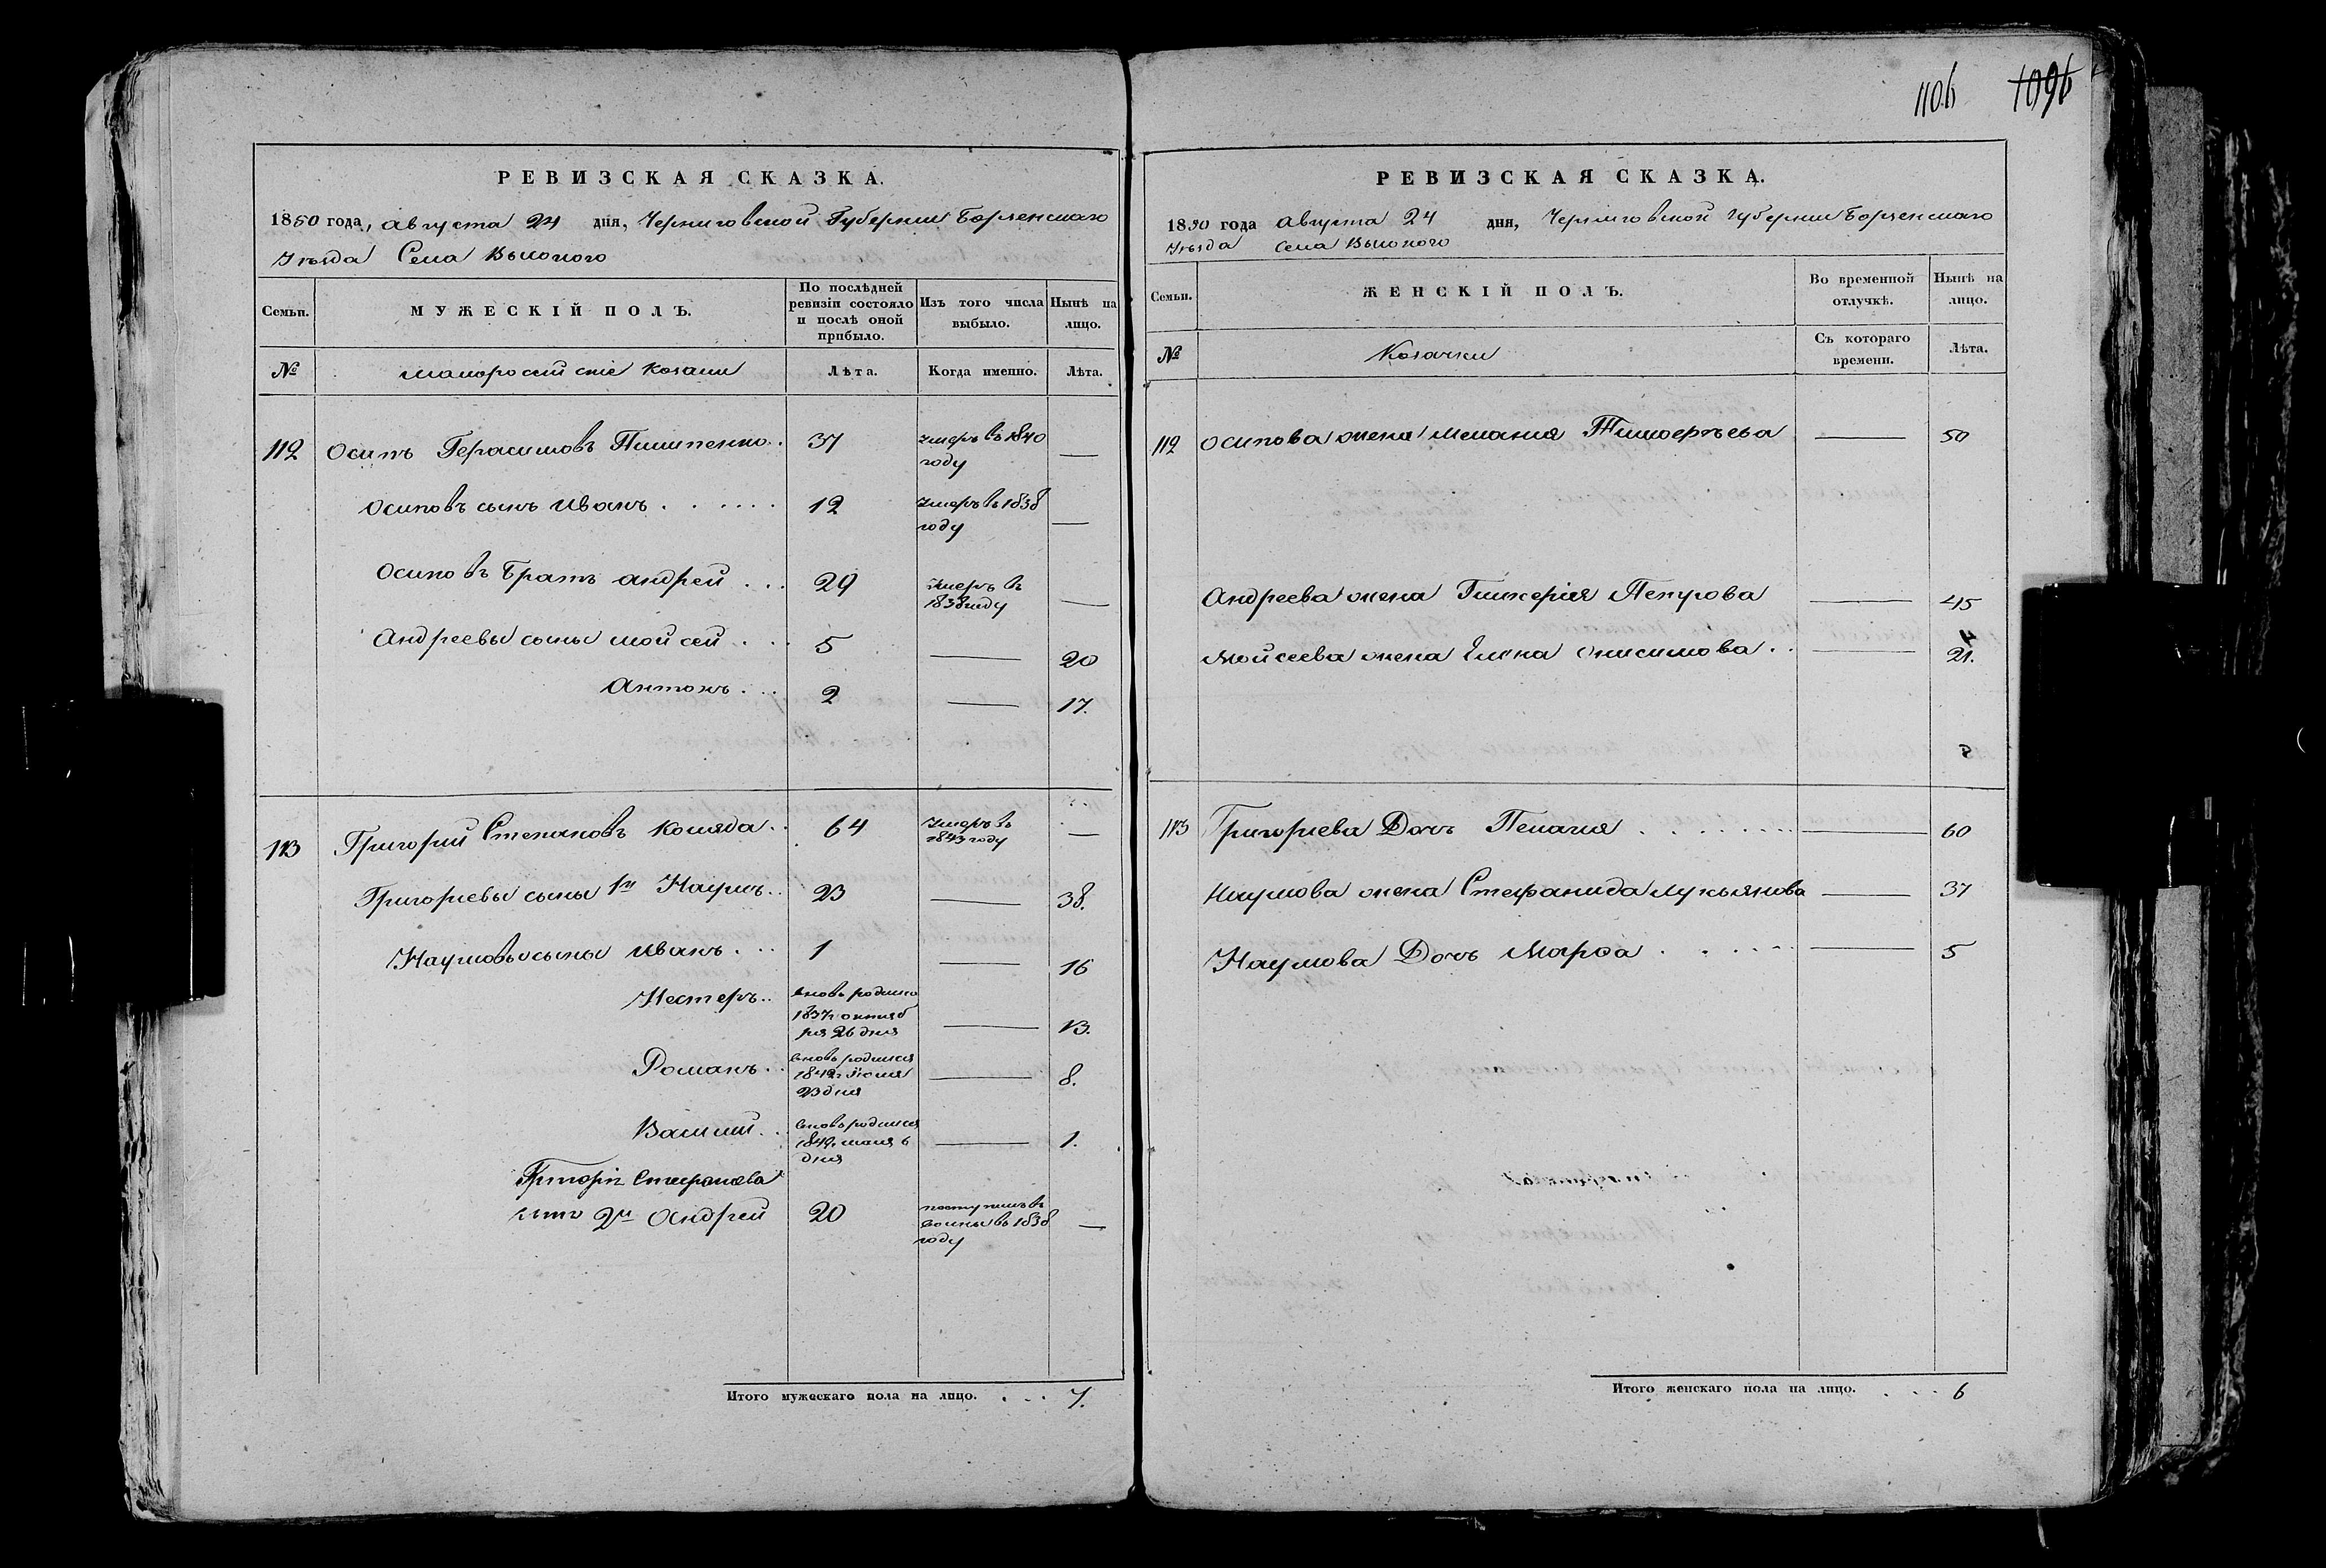 1106 1096
РЕВИЗСКАЯ СКАЗКА.
1850 года, августа 24 дня, Черниговской Губернии Борзенскаго
Уѣзда Села Высокого
Семьи. МУЖЕСКІЙ ПОЛЪ. По послѣдней ревизіи состояло и послѣ оной прибыло. Изъ того числа выбыло. Нынѣ на лицо.
№ малороссийские козаки Лѣта. Когда именно. Лѣта.
112 Осипъ Герасимовъ Пилипенко.. 37 умеръ въ 1840 году —
Осиповъ сынъ Иванъ...... 12 умеръ въ 1838 году —
Осиповъ братъ андрей... 29 умеръ въ 1838 году —
Андреевы сыны мойсей... 5 — 20
Антонъ... 2 — 17.
113 Григорий Степановъ Коляда.. 64 умеръ въ 1843 году —
Григориевы сыны 1й Наумъ.. 23 — 38.
Наумовы сыны иванъ... 1 — 16
Нестеръ.. вновь родился 1837г октяб
ря 26 дня — 13.
Романъ.. вновь родился 1842г Июля
23 дня — 8.
Василий.. вновь родился 1849г 6
дня — 1.
Григория Степанова
сынъ 2й Андрей 20 поступилъ въ
въ 1838
году —
Итого мужескаго пола на лицо.... 7.
РЕВИЗСКАЯ СКАЗКА.
1850 года Августа 24 дня, Черниговской губернии Борзенскаго
Уѣзда Села Высокого
Семьи. ЖЕНСКІЙ ПОЛЪ. Во временной отлучкѣ. Нынѣ на лицо.
№ Козачки Съ котораго времени. Лѣта.
112 осипова жена мелания Тимофеева — 50
Андреева жена Гликерия Петрова — 45
Мойсеева жена Елена Онисимова.. — 21.
113 Григориева Дочь Пелагия........ — 60
Наумова жена Стефанида лукьянова — 37
Наумова Дочь Марфа...... — 5
Итого женскаго пола на лицо.... 6